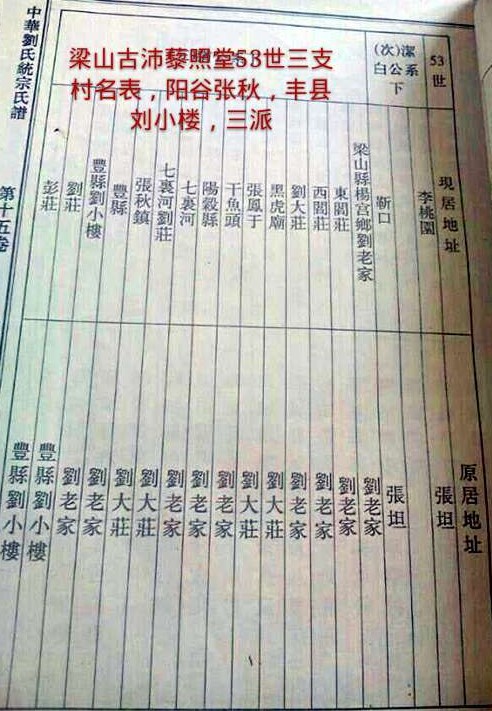 梁山古沛藜照堂53世三支
村名表，阳谷张秋，丰县
刘小楼，三派
53世
(次)潔系
白公下
現居地址
李桃園
靳口
梁山縣楊宫鄉劉老家
東閻莊
西閻莊
劉大莊
黑虎廟
張鳳于
干魚頭
陽穀縣
七裏河
七裏河劉莊
張秋鎮
豐縣
豐縣劉小樓
劉莊
彭莊
原居地址
張坦
張坦
劉老家
劉老家
劉老家
劉老家
劉大莊
劉大莊
劉老家
劉老家
劉老家
劉大莊
劉大莊
劉老家
劉老家
豐縣劉小樓
豐縣劉小樓
中華劉氏統宗氏譜
第十五卷